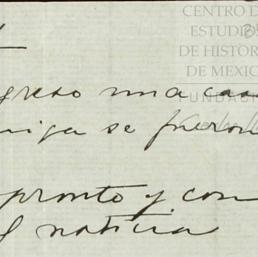 CENTRO D
ESTUDIOS
DE HISTOR
DE MEXIC
FUNDACI
greso una casa
miga se fueron
pronto y con
l noticia